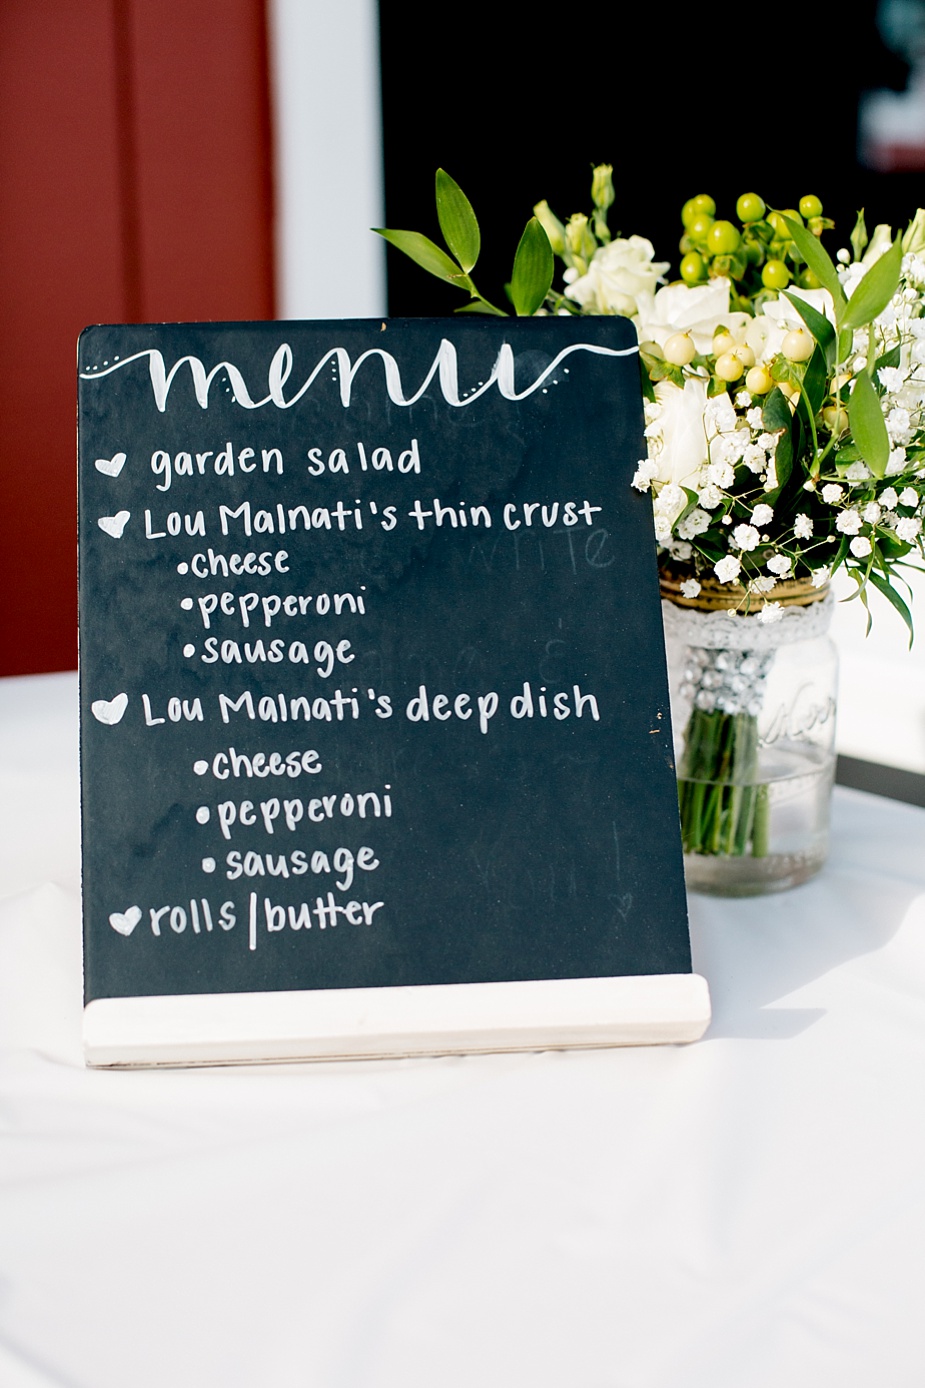 menu
garden salad
Lou Malnati's thin crust
•cheese
•pepperoni
•sausage
Lou Malnati's deep dish
•cheese
•pepperoni
•sausage
rolls/butter
write